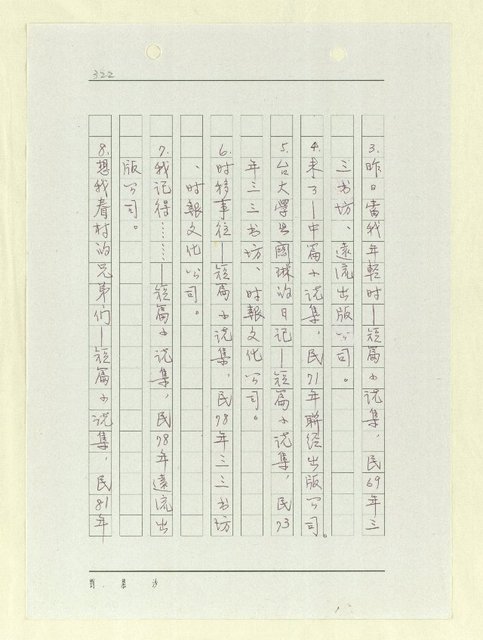 322
3.昨日當我年輕时—短篇小说集，民69年三
三书坊、遠流出版公司。
4.未了—中篇小说集，民71年聯经出版公司。
5.台大學生關琳的日记—短篇小说集，民73
年三三书坊、时報文化公司。
6.时移事往—短篇小说集，民78年三三书坊
、时報文化公司。
7.我记得……—短篇小说集，民78年遠流出
版公司。
8.想我眷村的兄弟们—短篇小说集，民81年
劉慕沙